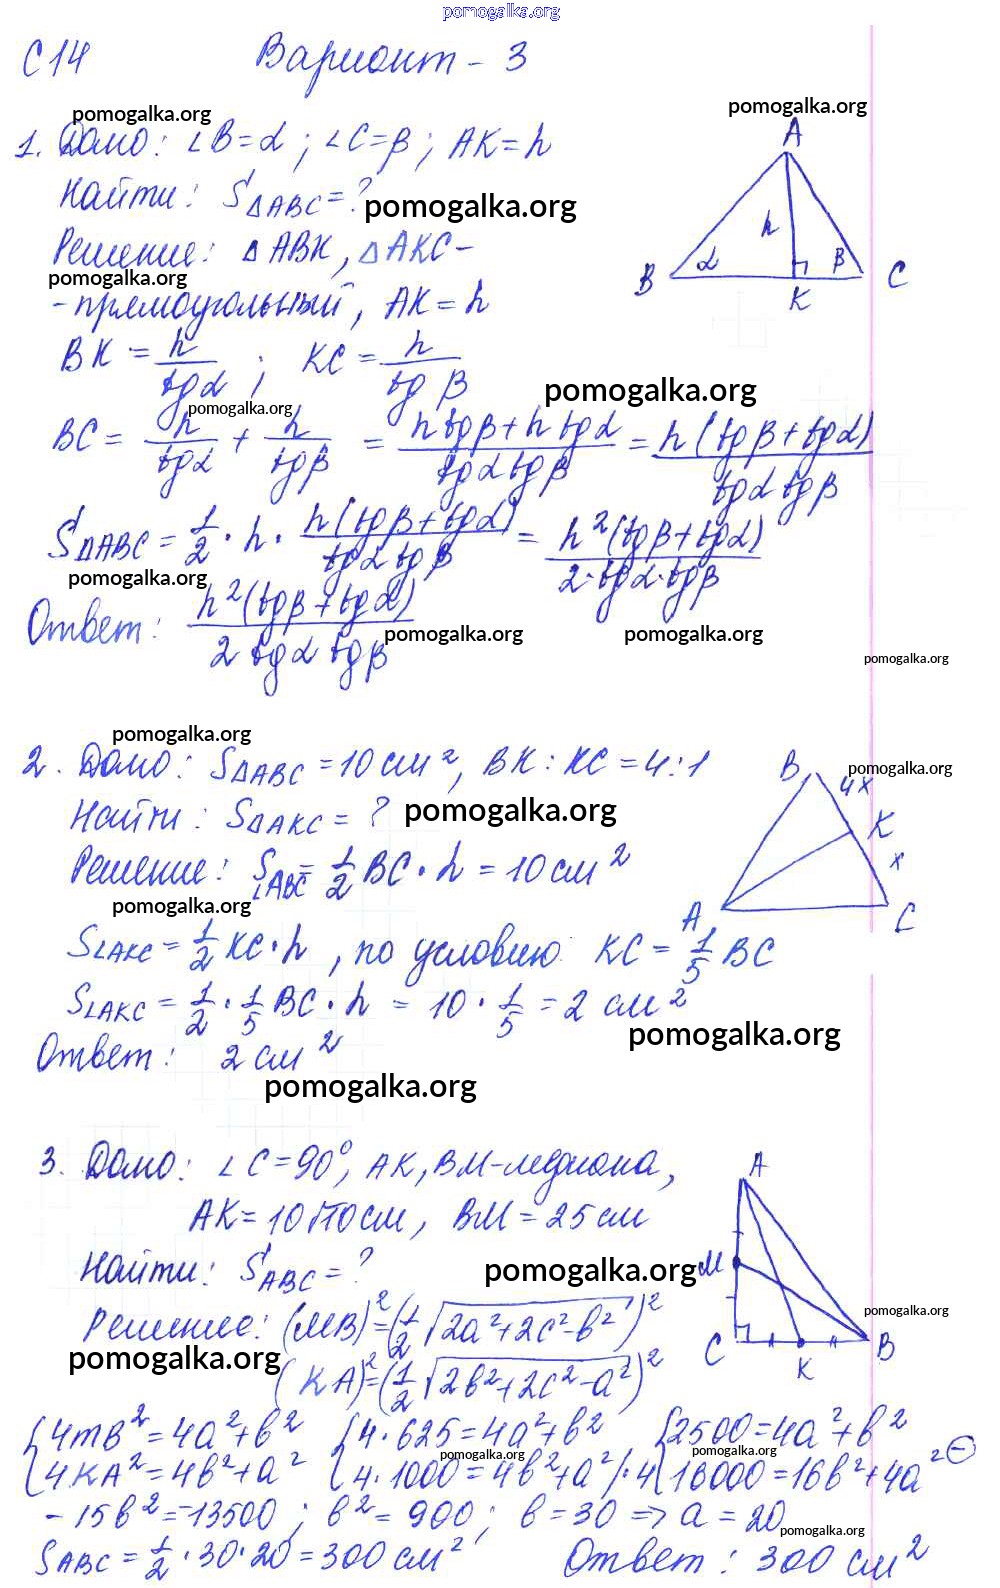 pomogalka.org
С14 Вариант - 3
pomogalka.org pomogalka.org
1. Дано: ∠B=α; ∠C=β; AK=h
Найти: S△ABC=? pomogalka.org
Решение: △ABK, △AKC-
pomogalka.org
-прямоугольный, AK=h
A
h
B α β C
K
BK = h/tgα; KC = h/tgβ
pomogalka.org
pomogalka.org
BC = h/tgα + h/tgβ = (h tgβ + h tgα)/(tgα tgβ) = h(tgβ + tgα)/(tgα tgβ)
S△ABC = 1/2 · h · h(tgβ + tgα)/(tgα tgβ) = h²(tgβ + tgα)/(2·tgα·tgβ)
pomogalka.org
Ответ: h²(tgβ + tgα)/(2 tgα tgβ)
pomogalka.org pomogalka.org
pomogalka.org
pomogalka.org
2. Дано: S△ABC = 10 см², BK : KC = 4:1
Найти: S△AKC = ? pomogalka.org
Решение: S∠ABC = 1/2 BC · h = 10 см²
pomogalka.org
B 4x pomogalka.org
K
x
A C
S∠AKC = 1/2 KC·h, по условию KC = 1/5 BC
S∠AKC = 1/2 · 1/5 BC · h = 10 · 1/5 = 2 см²
pomogalka.org
Ответ: 2 см²
pomogalka.org
3. Дано: ∠C=90°, AK, BM-медиана,
AK=10√10 см, BM=25 см
Найти: SABC=? pomogalka.org
Решение: (MB)²=(1/2 √2a²+2c²-b²)²
pomogalka.org
(KA)²=(1/2 √2b²+2c²-a²)²
A
M
pomogalka.org
C K B
{4mB²=4a²+b² {4·625=4a²+b² {2500=4a²+b²
pomogalka.org pomogalka.org
{4KA²=4b²+a² {4·1000=4b²+a² /·4 {16000=16b²+4a² ⊖
-15b²=-13500; b²=900; b=30 => a=20
pomogalka.org
SABC = 1/2 · 30·20 = 300 см² Ответ: 300 см²